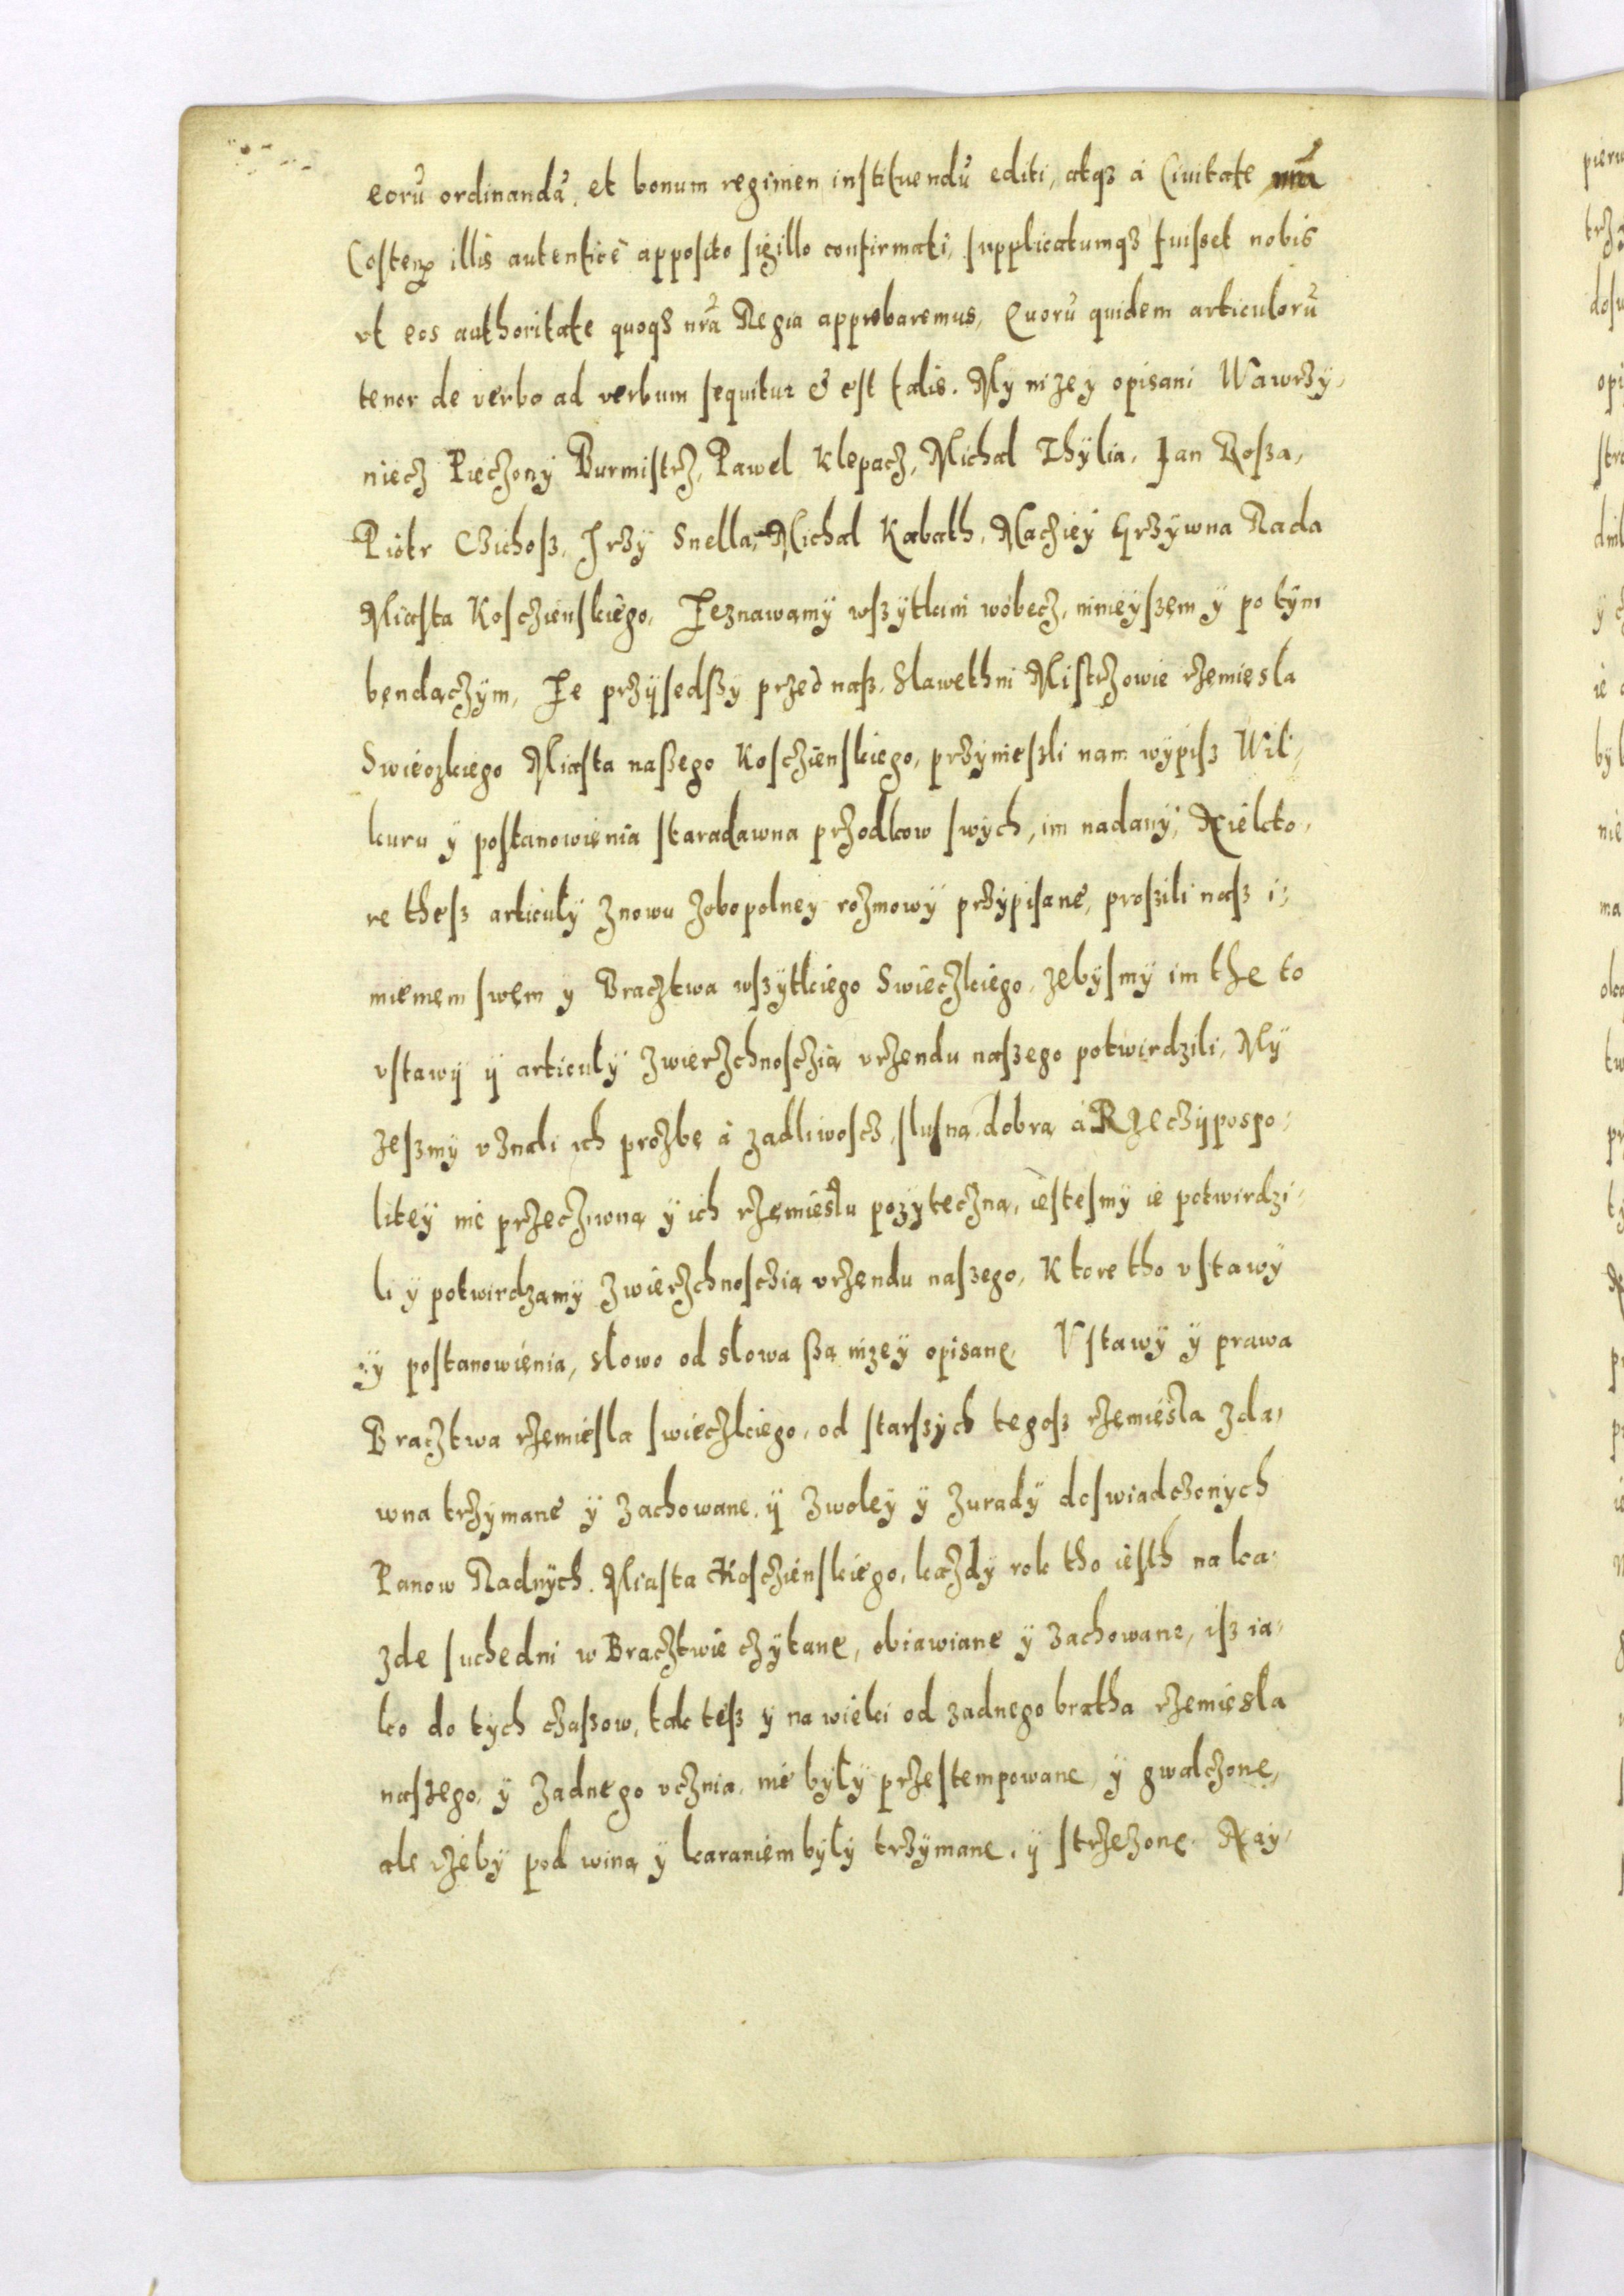 eorū ordinandā, et bonum regimen instituendū editi, atqʒ à Ciuitate nrā
Costen illis autenticè apposito sigillo confirmati, supplicatumqʒ fuisset nobis
vt eos authoritate quoqʒ nrā Regia approbaremus, Quorū quidem articulorū
tenor de verbo ad verbum sequitur & est talis. My nizey opisani Wawrzy,
niecz Pieczony Burmistrz, Pawel Klepacz, Michal Thylia, Jan Rosza,
Piotr Czichosz, Jrzy Snella, Michal Kabath, Maczieÿ Grzywna Rada
Miasta Kosczienskiego, Zeznawamÿ wszytkim wobecz, ninieyszem ÿ po tÿm
bendączÿm, Ze przÿsedszy przed nasz Slawethni Mistrzowie rzemiesla
Swieczkiego Miasta naszego Kosczienskiego, przÿnieszli nam wÿpisz Wil,
kuru ÿ postanowienia staradawna przodkow swÿch, im nadanÿ, Niekto,
re thesz articulÿ znowu zobopolney rozmowÿ przÿpisane, prosili nasz i,
mieniem swem y Bracztwa wszÿtkiego Swieczkiego, zebÿsmÿ im the to
vstawÿ ÿ articulÿ zwierzchnosczią vrzendu naszego potwirdzili, Mÿ
zeszmÿ vznali ich prozbe à zadliwoscz, slusną dobrą à Rzeczÿpospo,
liteÿ nie przeczÿwną ÿ ich rzemieslu pozÿteczną, iestesmÿ ie potwirdzi,
li ÿ potwirdzamÿ zwierzchnosczią vrzendu naszego, Ktore tho vstawÿ
ÿ postanowienia, slowo od slowa szą nizeÿ opisane. Vstawÿ ÿ prawa
Bracztwa rzemiesla swieczkiego, od starszÿch tegosz rzemiesla zda,
wna trzÿmane ÿ zachowane, ÿ zwoleÿ ÿ zuradÿ doswiadczonÿch
Panow Radnÿch Miasta Kosczienskiego, kazdÿ rok tho iesth na ka,
zde suchedni w Bracztwie czÿtane, obiawiane ÿ zachowane, isz ia,
ko do tÿch czaszow, tak tesz ÿ na wieki od zadnego bratha rzemiesla
naszego, ÿ zadnego vcznia, nie bÿlÿ przestempowane ÿ gwalczone,
ale zebÿ pod winą ÿ karaniem bÿlÿ trzÿmane, ÿ strzezone. Nay,